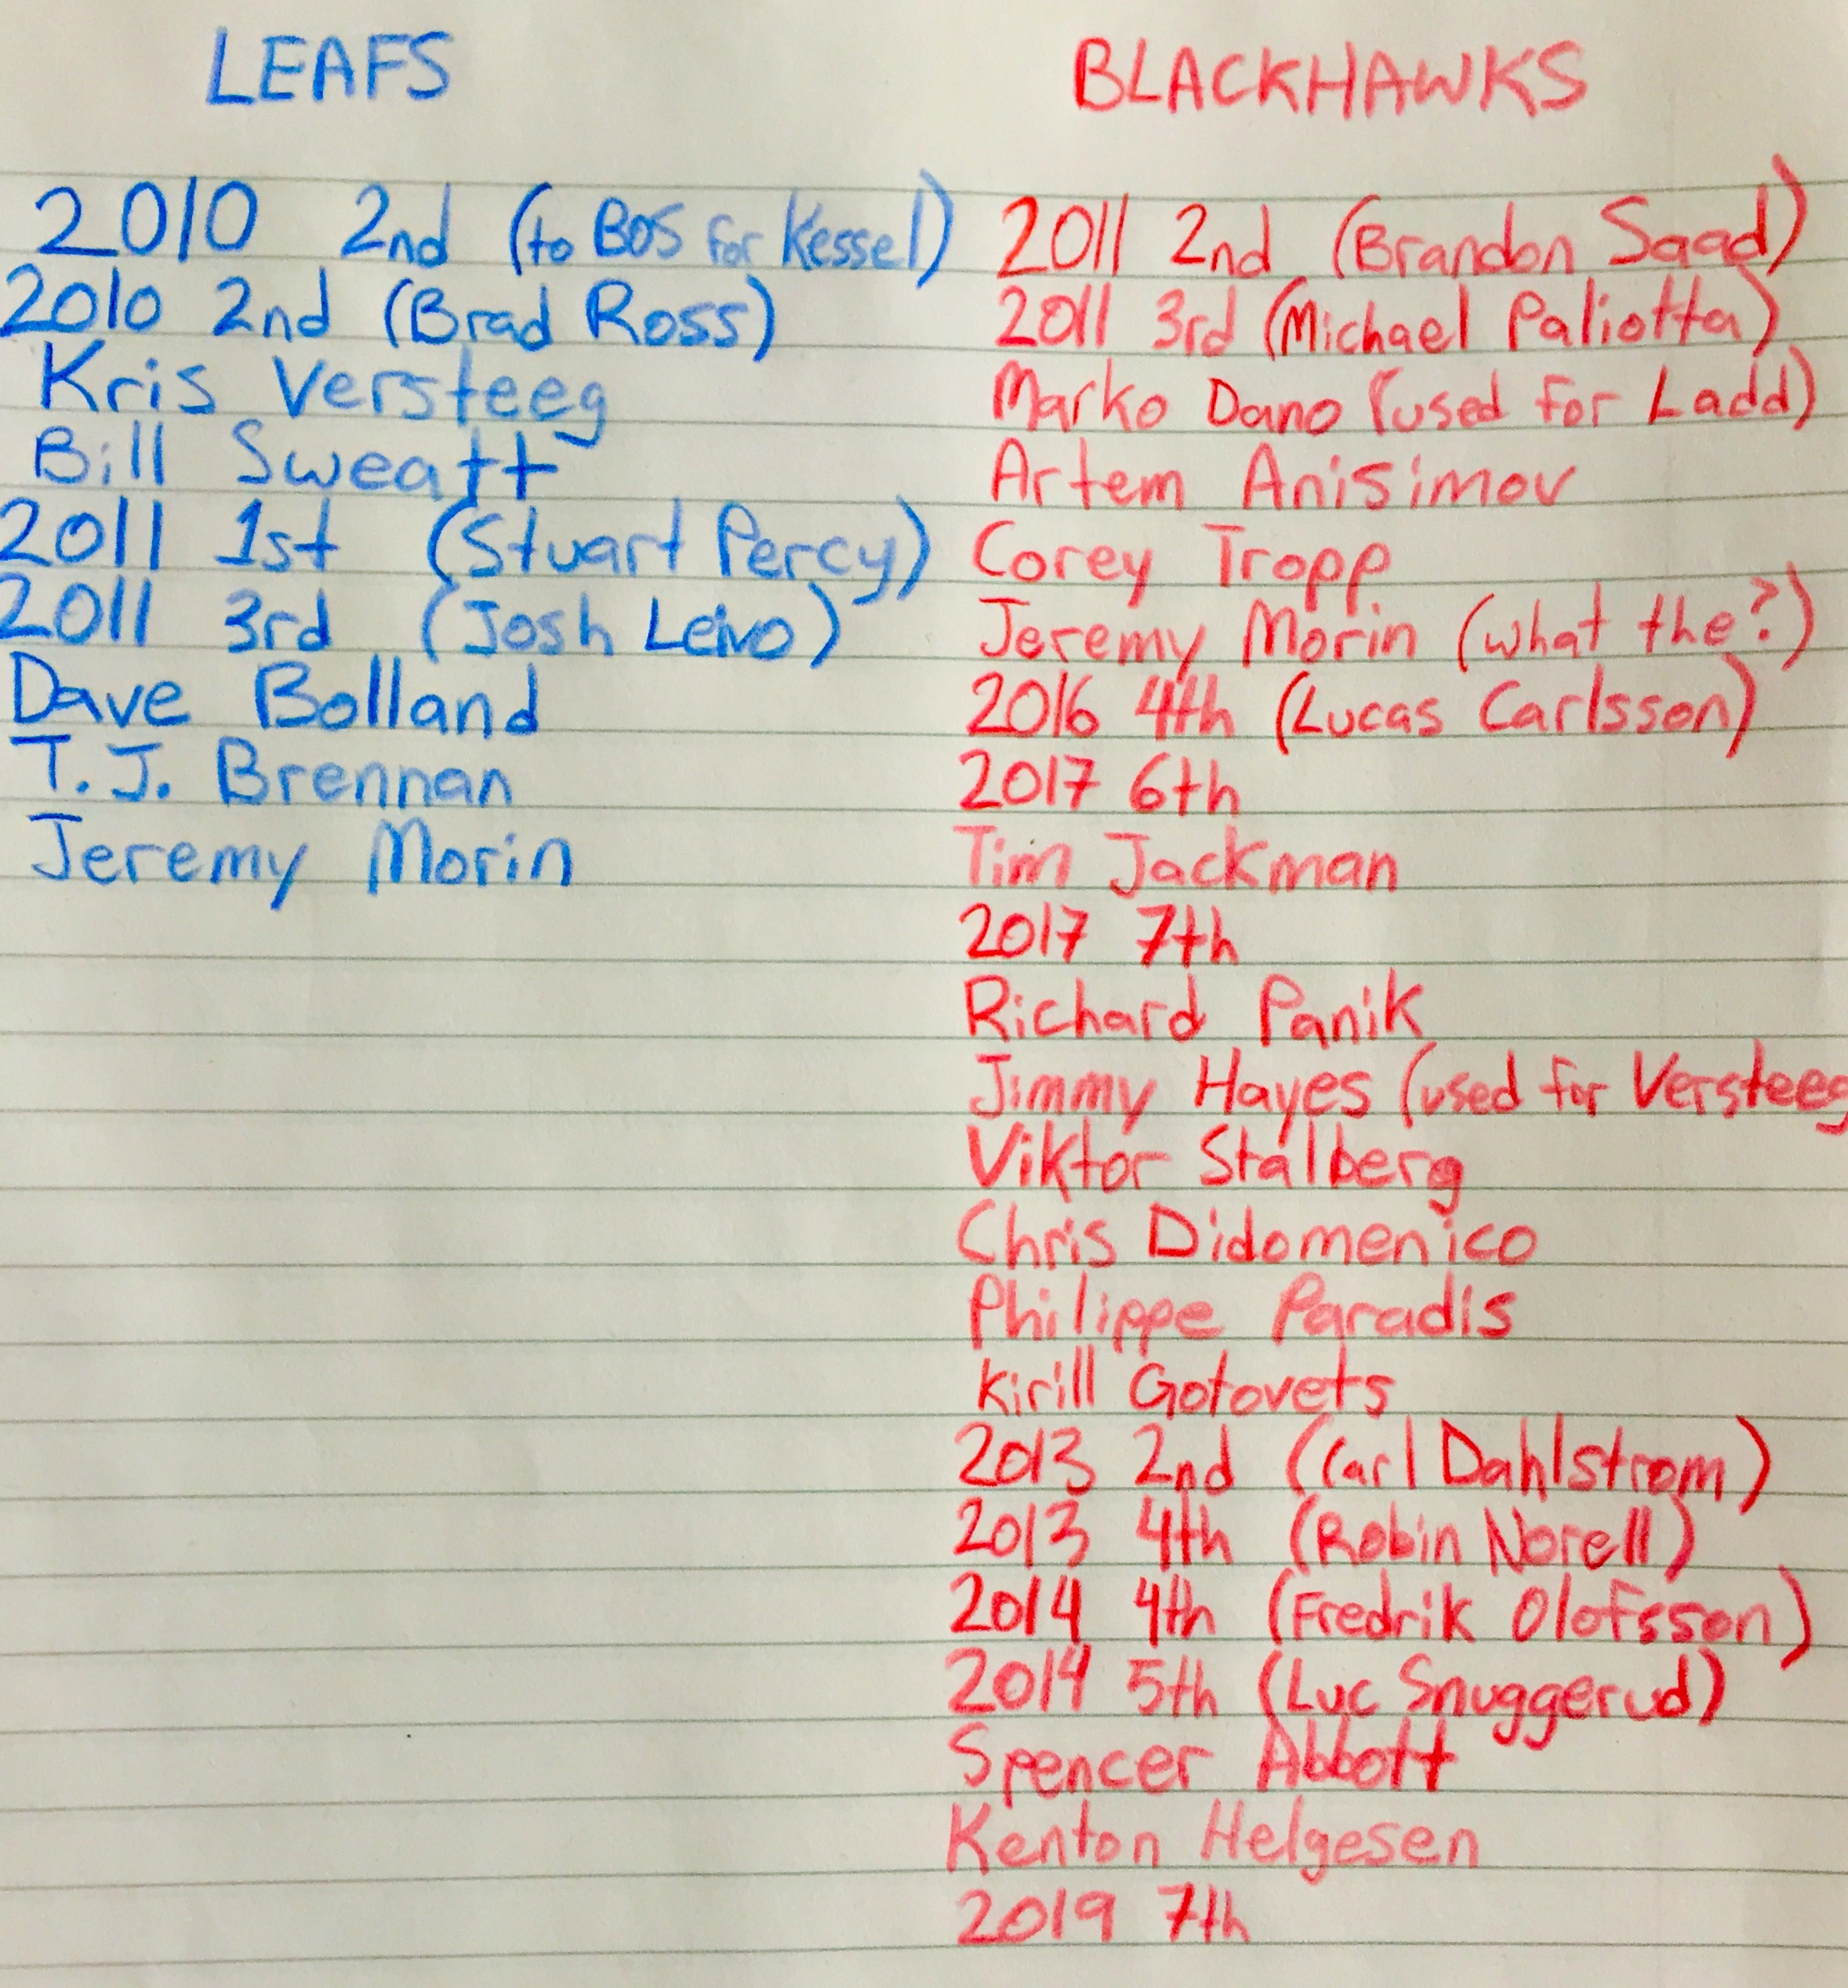 LEAFS
2010 2nd (to BOS for Kessel)
2010 2nd (Brad Ross)
Kris Versteeg
Bill Sweatt
2011 1st (Stuart Percy)
2011 3rd (Josh Leivo)
Dave Bolland
T.J. Brennan
Jeremy Morin
BLACKHAWKS
2011 2nd (Brandon Saad)
2011 3rd (Michael Paliotta)
Marko Dano (used for Ladd)
Artem Anisimov
Corey Tropp
Jeremy Morin (what the?)
2016 4th (Lucas Carlsson)
2017 6th
Tim Jackman
2017 7th
Richard Panik
Jimmy Hayes (used for Versteeg
Viktor Stalberg
Chris Didomenico
Philippe Paradis
Kirill Gotovets
2013 2nd (Carl Dahlstrom)
2013 4th (Robin Norell)
2014 4th (Fredrik Olofsson)
2014 5th (Luc Snuggerud)
Spencer Abbott
Kenton Helgesen
2019 7th